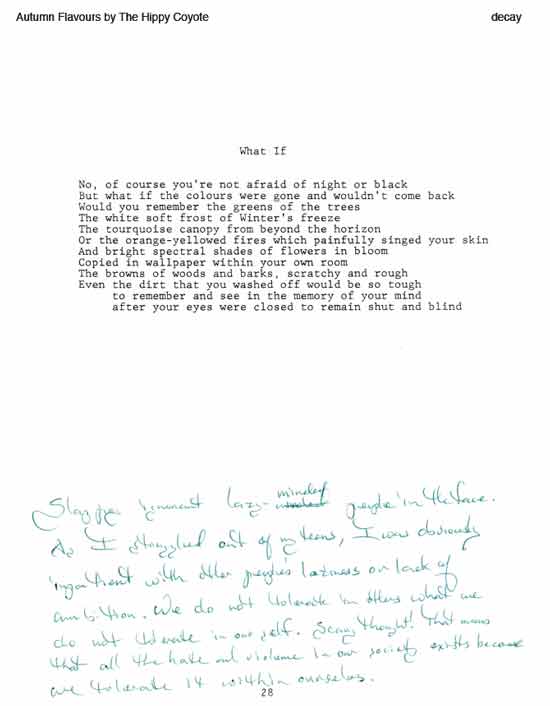 Autumn Flavours by The Hippy Coyote decay
What If
No, of course you're not afraid of night or black
But what if the colours were gone and wouldn't come back
Would you remember the greens of the trees
The white soft frost of Winter's freeze
The tourquoise canopy from beyond the horizon
Or the orange-yellowed fires which painfully singed your skin
And bright spectral shades of flowers in bloom
Copied in wallpaper within your own room
The browns of woods and barks, scratchy and rough
Even the dirt that you washed off would be so tough
to remember and see in the memory of your mind
after your eyes were closed to remain shut and blind
ignorant lazy-minded people in the face.
As I struggled out of my teens, I was obviously
impatient with other people's laziness or lack of
ambition. We do not tolerate in others what we
do not tolerate in our self. Scary thought! That means
that all the hate and violence in our society exists because
we tolerate it within ourselves.
28